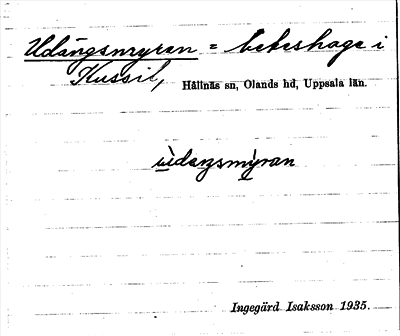 Udängsmyran = beteshage i
Kussil, Hållnäs sn, Olands hd, Uppsala län.
ùdaŋsmỳran
Ingegärd Isaksson 1935.